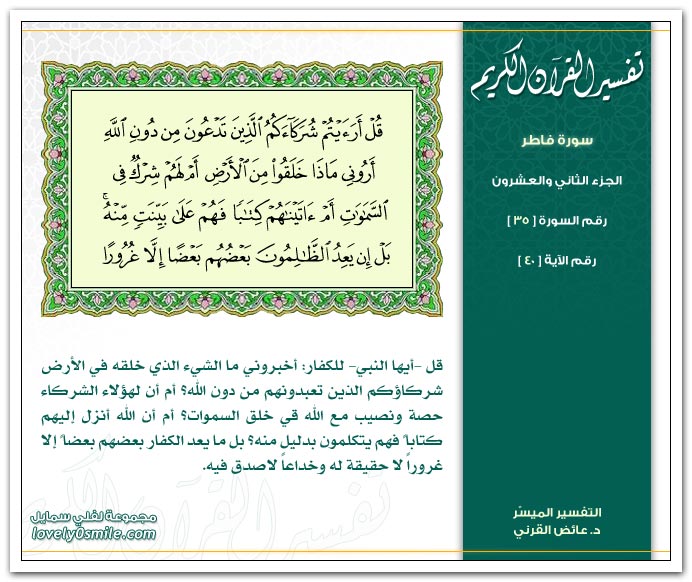 تفسير القرآن الكريم
سورة فاطر
الجزء الثاني والعشرون
رقم السورة [ ٣٥ ]
رقم الآية [ ٤٠ ]
قُلْ أَرَءَيْتُمْ شُرَكَآءَكُمُ ٱلَّذِينَ تَدْعُونَ مِن دُونِ ٱللَّهِ
أَرُونِي مَاذَا خَلَقُوا۟ مِنَ ٱلْأَرْضِ أَمْ لَهُمْ شِرْكٌ فِى
ٱلسَّمَٰوَٰتِ أَمْ ءَاتَيْنَٰهُمْ كِتَٰبًا فَهُمْ عَلَىٰ بَيِّنَتٍ مِّنْهُ ۚ
بَلْ إِن يَعِدُ ٱلظَّٰلِمُونَ بَعْضُهُم بَعْضًا إِلَّا غُرُورًا
قل -أيها النبي- للكفار: أخبروني ما الشيء الذي خلقه في الأرض
شركاؤكم الذين تعبدونهم من دون الله؟ أم أن لهؤلاء الشركاء
حصة ونصيب مع الله قي خلق السموات؟ أم أن الله أنزل إليهم
كتاباً فهم يتكلمون بدليل منه؟ بل ما يعد الكفار بعضهم بعضاً إلا
غروراً لا حقيقة له وخداعاً لاصدق فيه.
التفسير الميسّر
د. عائض القرني
مجموعة لفلي سمايل
lovely0smile.com
تفسير القرآن الكريم